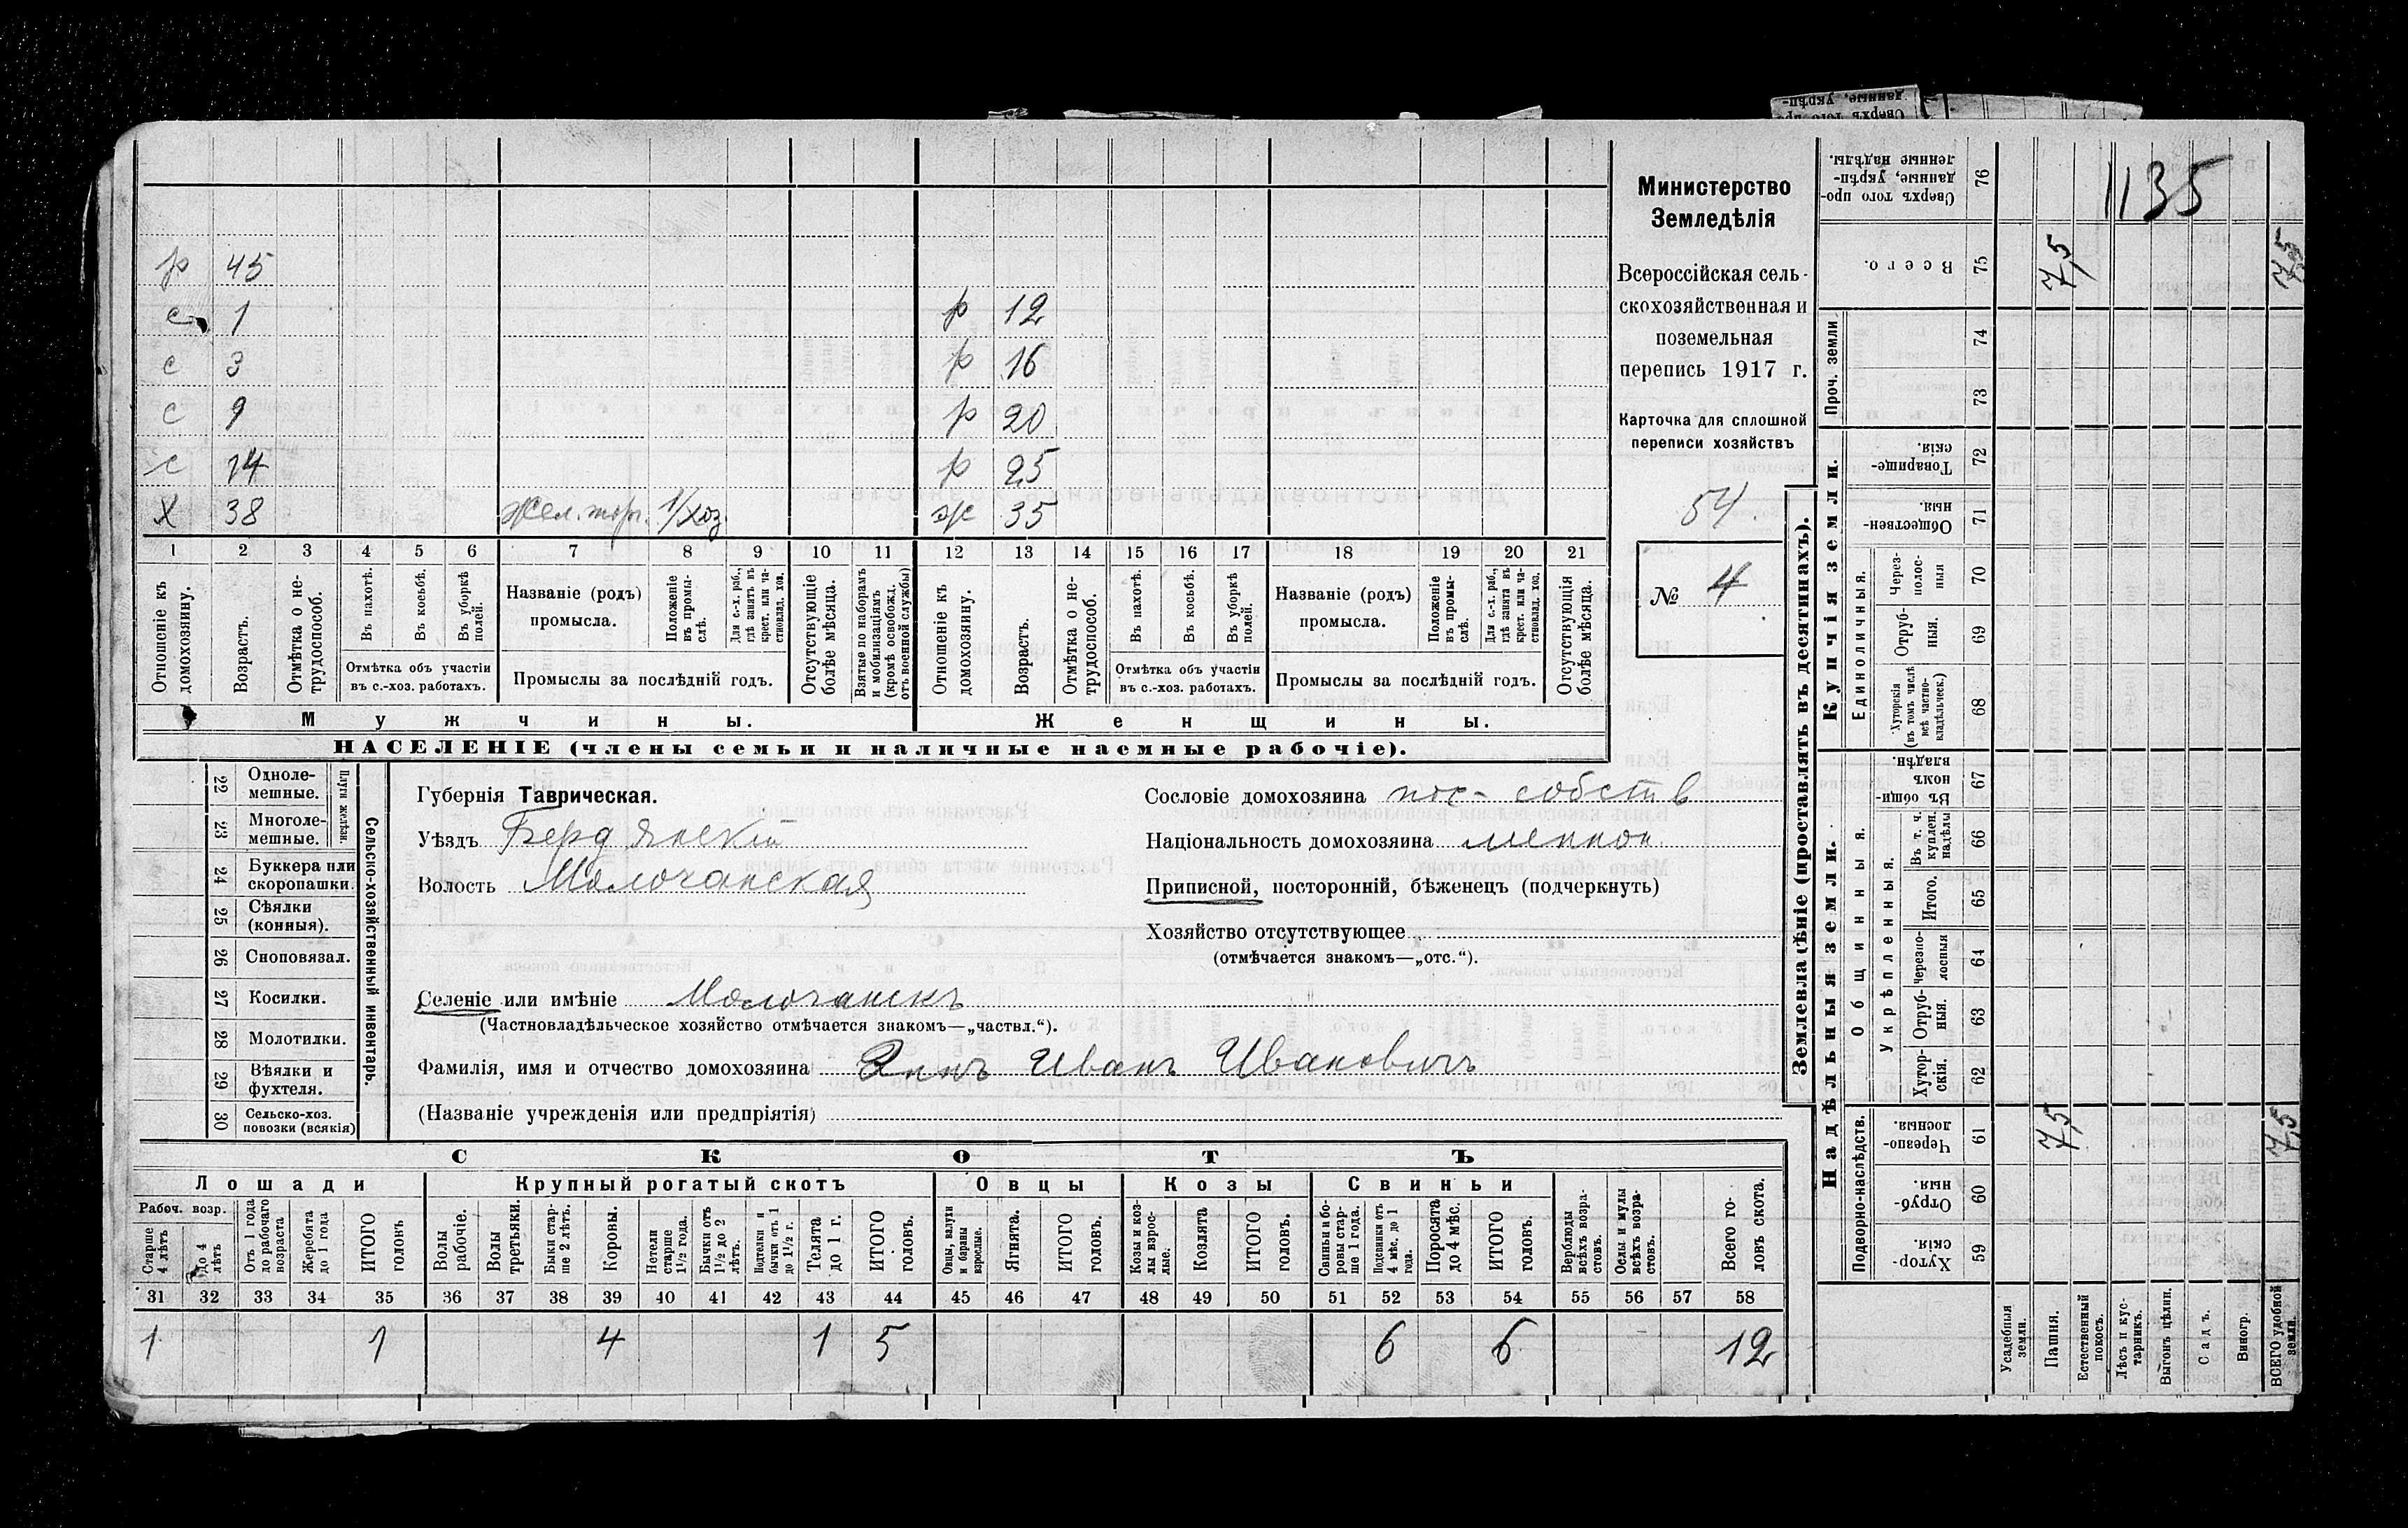 р 45
с 1 р 12
с 3 р 16
с 9 р 20
с 14 р 25
Х 38 Жел. торг. 1/хоз. ж 35
1 2 3 4 5 6 7 8 9 10 11 12 13 14 15 16 17 18 19 20 21
Отношеніе къ домохозяину.
Возрастъ.
Отмѣтка о не-трудоспособ.
Въ пахотѣ.
Въ косьбѣ.
Въ уборкѣ полей.
Отмѣтка объ участіи
въ с.-хоз. работахъ.
Названіе (родъ)
промысла.
Положеніе въ промы-слѣ.
Для с.-х. раб., гдѣ занятъ въ крест. или ча-стновлад. хоз.
Промыслы за послѣдній годъ.
Отсутствующіе болѣе мѣсяца.
Взятые по наборамъ и мобилизаціямъ (кромѣ освобожд. отъ военной службы)
Отношеніе къ домохозяину.
Возрастъ.
Отмѣтка о не-трудоспособ.
Въ пахотѣ.
Въ косьбѣ.
Въ уборкѣ полей.
Отмѣтка объ участіи
въ с.-хоз. работахъ.
Названіе (родъ)
промысла.
Положеніе въ промы-слѣ.
Для с.-х. раб., гдѣ занята въ крест. или ча-стновлад. хоз.
Промыслы за послѣдній годъ.
Отсутствующія болѣе мѣсяца.
Мужчины.
Женщины.
НАСЕЛЕНІЕ (члены семьи и наличные наемные рабочіе).
Министерство
Земледѣлія
Всероссійская сель-
скохозяйственная и
поземельная
перепись 1917 г.
Карточка для сплошной
переписи хозяйствъ
54.
№ 4
22 Одноле-
мешные.
23 Многоле-
мешные.
Плуги желѣзн.
24 Буккера или
скоропашки.
25 Сѣялки
(конныя).
26 Сноповязал.
27 Косилки.
28 Молотилки.
29 Вѣялки и
фухтеля.
30 Сельско-хоз.
повозки (всякія)
Сельско-хозяйственный инвентарь.
Губернія Таврическая.
Уѣздъ Бердянскій
Волость Молочанская
Сословіе домохозяина пос- собств
Національность домохозяина меннон.
Приписной, посторонній, бѣженецъ (подчеркнуть)
Хозяйство отсутствующее
(отмѣчается знакомъ—„отс.“).
Селеніе или имѣніе Молочанскъ
(Частновладѣльческое хозяйство отмѣчается знакомъ—„частвл.“).
Фамилія, имя и отчество домохозяина Эннъ Иванъ Ивановичъ
(Названіе учрежденія или предпріятія)
СКОТЪ
Лошади
Крупный рогатый скотъ
Овцы
Козы
Свиньи
Рабоч. возр.
Старше 4 лѣтъ
до 4 лѣтъ
Отъ 1 года до рабочаго возраста
Жеребята до 1 года
ИТОГО головъ
Волы рабочіе.
Волы третьяки.
Быки стар-ше 2 лѣтъ.
Коровы.
Нетели старше 1½ года.
Бычки отъ 1½ до 2 лѣтъ.
Подтелки и бычки отъ 1 до 1½ г.
Телята до 1 г.
ИТОГО головъ.
Овцы, валухи и бараны взрослые.
Ягнята.
ИТОГО головъ.
Козы и коз-лы взрос-лые.
Козлята
ИТОГО головъ.
Свиньи и бо-ровы стар-ше 1 года.
Подсвинки отъ 4 мѣс. до 1 года.
Поросята до 4 мѣс.
ИТОГО головъ.
Верблюды всѣхъ возра-стовъ.
Ослы и мулы всѣхъ возра-стовъ.
Всего го-ловъ скота.
31 32 33 34 35 36 37 38 39 40 41 42 43 44 45 46 47 48 49 50 51 52 53 54 55 56 57 58
1 1 4 1 5 6 6 12
1135
Землевладѣніе (проставлять въ десятинахъ).
Купчія земли.
Надѣльныя земли.
Сверхъ того про-данные, укрѣп-ленные надѣлы. 76
Всего. 75 7,5 7,5
Проч. земли 74
73
Товарище-скія 72
Обществен-ныя. 71
Единоличныя.
Через-полос-ныя 70
Отруб-ныя. 69
Хуторскія (въ томъ числѣ всѣ частно-владѣльческ.) 68
Общинныя.
Въ общин-номъ владѣн. 67
Укрѣпленныя.
Въ т. ч. куплен. надѣлы 66
Итого. 65
Черезпо-лосныя 64
Отруб-ныя. 63
Хутор-скія. 62
Подворно-наслѣдств.
Черезпо-лосныя. 61 7,5 7,5
Отруб-ныя. 60
Хутор-скія. 59
Усадебныя земли.
Пашня.
Естественный покосъ.
Лѣсъ и кус-тарникъ.
Выгонъ цѣлин.
Садъ.
Виногр.
ВСЕГО удобной земли.
Сверхъ того про-
данные, укрѣп-